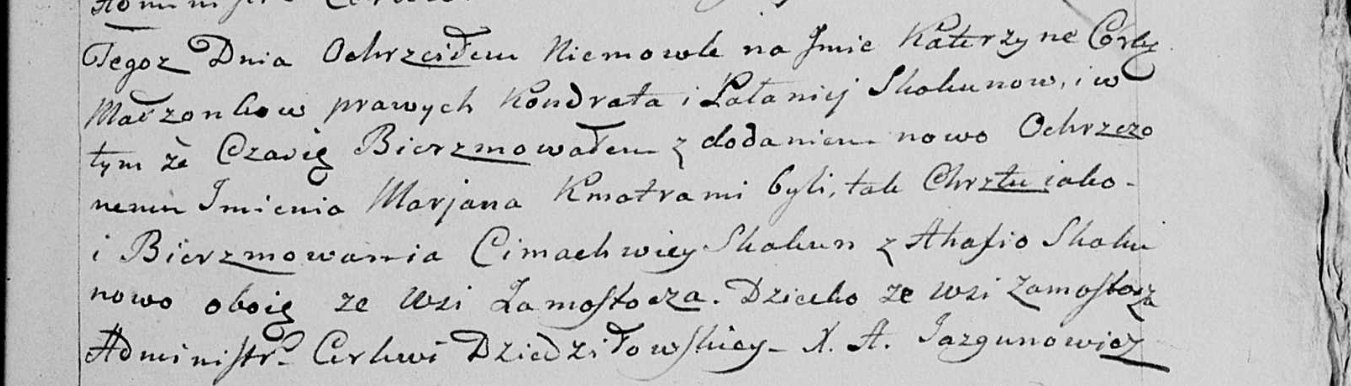 Administr. Cerkwi
Tegoz Dnia Ochrzciłem Niemowle na Jmie Katerzyne Corkę
Małzonkow prawych Kondrata i Pałanij Skakunow, i w
tym że Czasię Bierzmowałem z dodaniem nowo Ochrzczo
nemu Imienia Marjana Kmotrami byli, tak Chrztu jako-
i Bierzmowania Cimachwiey Skakun z Ahafio Skaku
nowo oboię ze Wsi Zamostocza. Dziecko ze Wsi Zamostocza
Administr. Cerkwi Dziedziłowskiey - X. A. Jazgunowicz